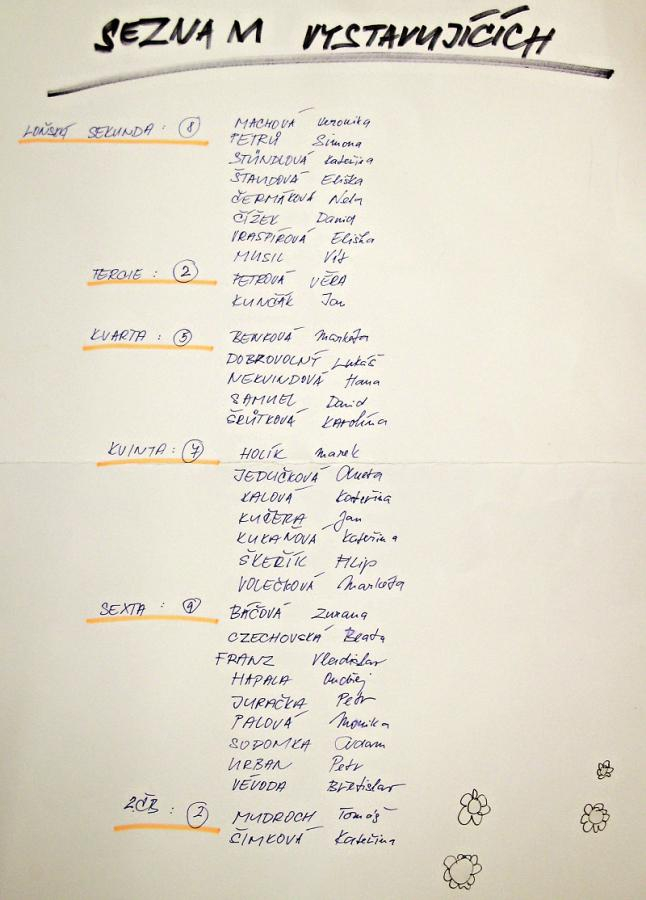 SEZNAM VYSTAVUJÍCÍCH
LOŇSKÁ SEKUNDA: 8 MACHOVÁ Veronika
PETRŮ Simona
ŠTÜNDLOVÁ Kateřina
ŠTAUDOVÁ Eliška
ČERMÁKOVÁ Nela
ČÍŽEK David
VRASPÍROVÁ Eliška
MUSIL Vít
TERCIE: 2 PETROVÁ VĚRA
KUNČÁK Jan
KVARTA: 5 BENKOVÁ Markéta
DOBROVOLNÝ Lukáš
NEKVINDOVÁ Hana
SAMUEL David
ŠRŮTKOVÁ KAROLÍNA
KVINTA: 7 HOLÍK Marek
JEDLIČKOVÁ Aneta
KALOVÁ Kateřina
KUČERA Jan
KUKAŇOVÁ Kateřina
ŠKEŘÍK FILIP
VOLEČKOVÁ Markéta
SEXTA: 9 BÁČOVÁ Zuzana
CZECHOVSKÁ Beata
FRANZ Vladislav
HAPALA Ondřej
JURAČKA Petr
PALOVÁ Monika
SODOMKA Adam
URBAN Petr
VÉVODA Břetislav
2.ČB: 2 MUDROCH Tomáš
ŠIMKOVÁ Kateřina